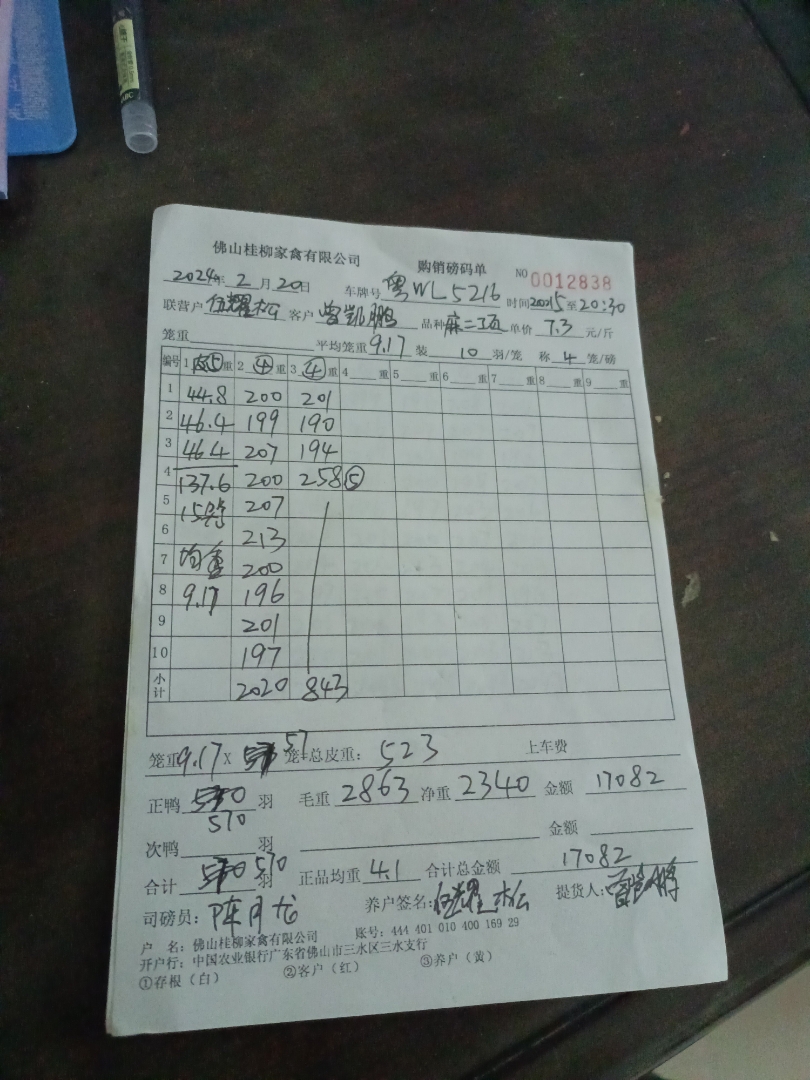 佛山桂柳家禽有限公司 购销磅码单 NO 0012838
2024年 2月20日 车牌号 粤WL5216 时间 2025至20:30
联营户 伍耀松 客户 曾凯鹏 品种 麻二 单价 7.3 元/斤
笼重 平均笼重 9.17 装 10 羽/笼 称 4 笼/磅
编号 1 ⑤ 重 2 ④ 重 3 ④ 重 4 重 5 重 6 重 7 重 8 重 9 重
1 44.8 200 201
2 46.4 199 190
3 46.4 207 194
4 137.6 200 258⑤
5 15 207
6 213
7 均重 200
8 9.17 196
9 201
10 197
小计 2020 843
笼重 9.17 X 57 笼=总皮重: 523 上车费
正鸭 570 羽 毛重 2863 净重 2340 金额 17082
次鸭 羽 金额
合计 570 羽 正品均重 4.1 合计总金额 17082
司磅员: 陈月龙 养户签名: 伍耀松 提货人: 曾凯鹏
户 名: 佛山桂柳家禽有限公司 账号: 444 401 010 400 169 29
开户行: 中国农业银行广东省佛山市三水区三水支行
①存根(白) ②客户(红) ③养户(黄)